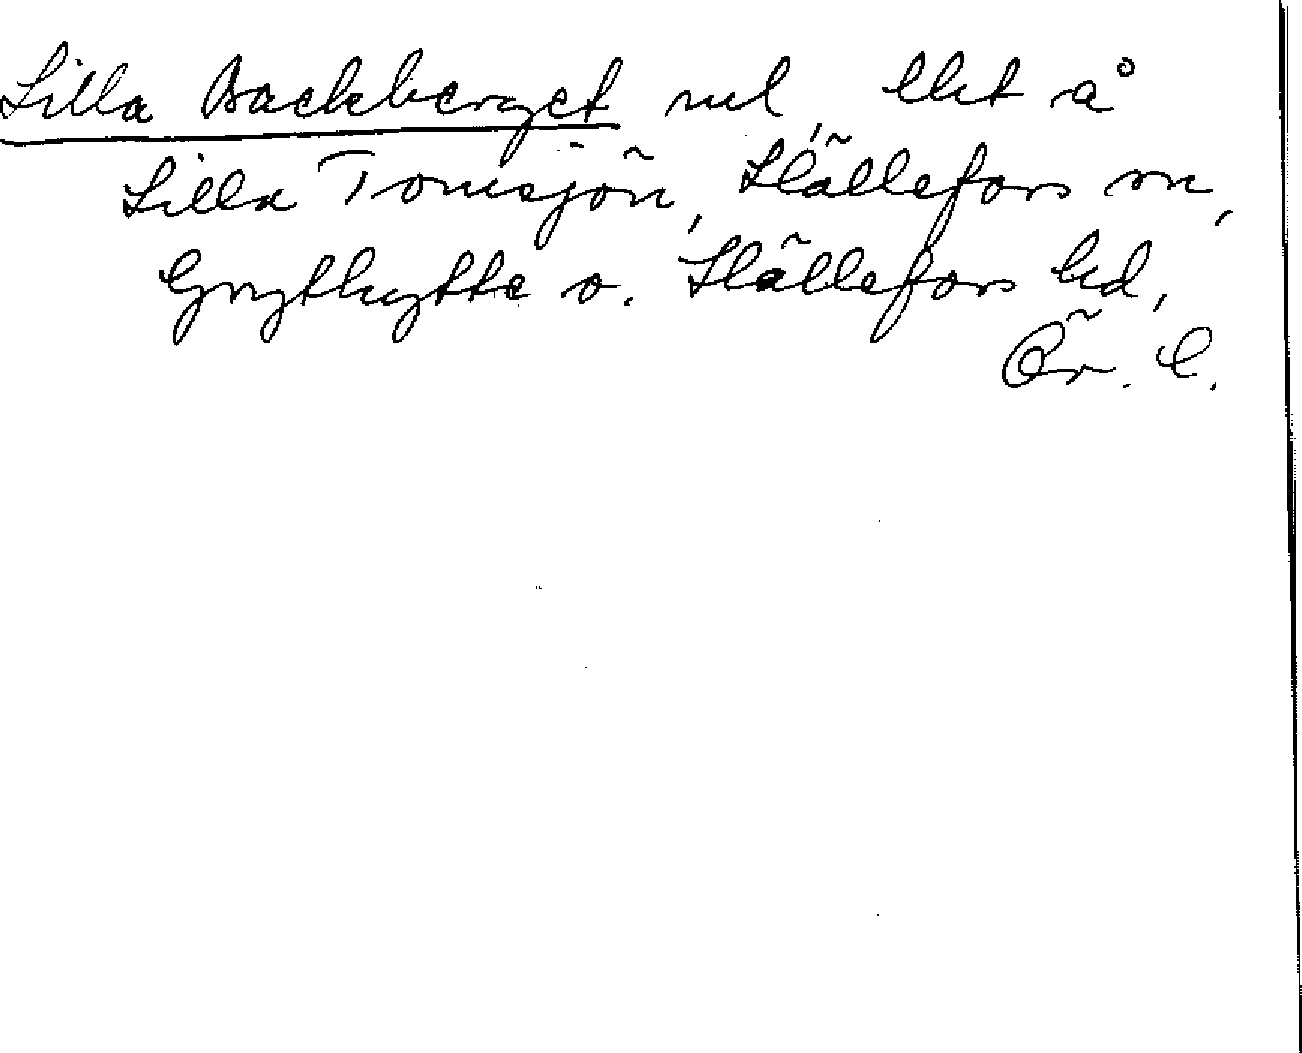 Lilla Backberget nul, lht å
Lilla Tomsjön, Hällefors sn,
Grythytte o. Hällefors hd,
Ör. l.